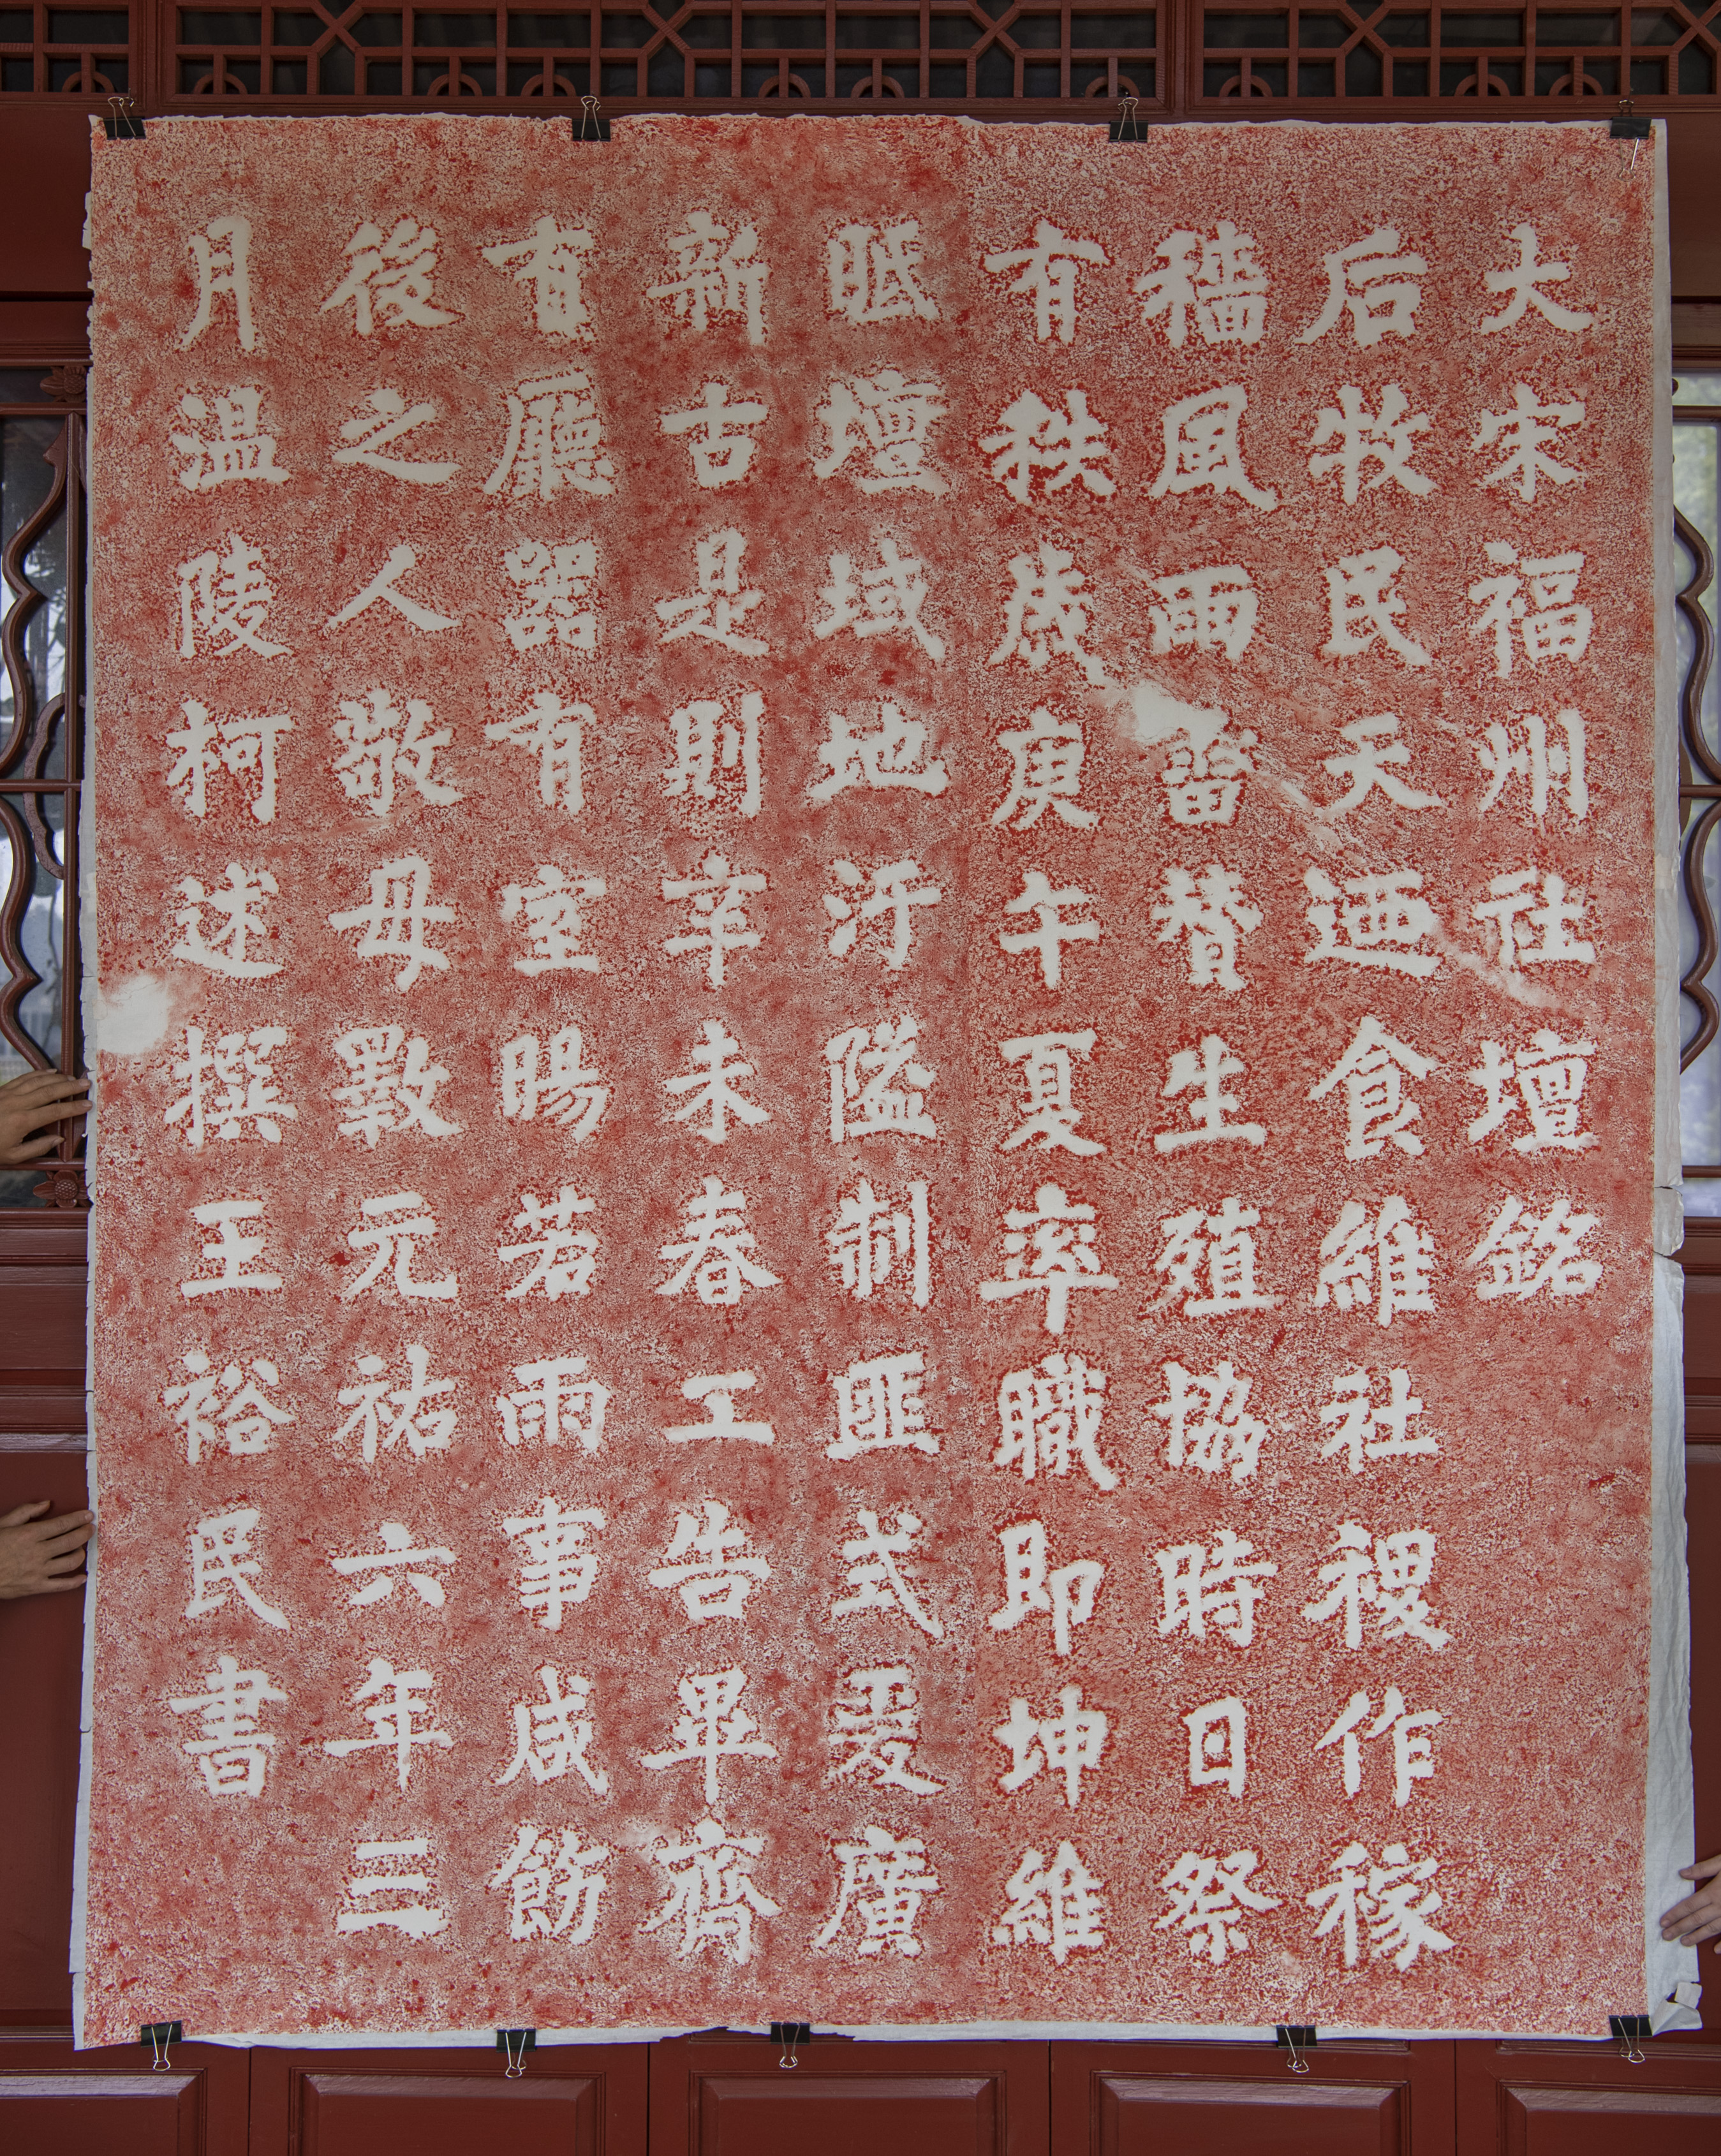 大宋福州社壇銘
后牧民天迺食維社稷作稼
穡風雨雷贊生殖協時日祭
有秩歲庚午夏率職即坤維
眡壇域地汙隘制匪式爰廣
新古是則辛未春工告畢齋
有廳器有室暘若雨事咸飭
後之人敬毋斁元祐六年三
月温陵柯述撰王裕民書